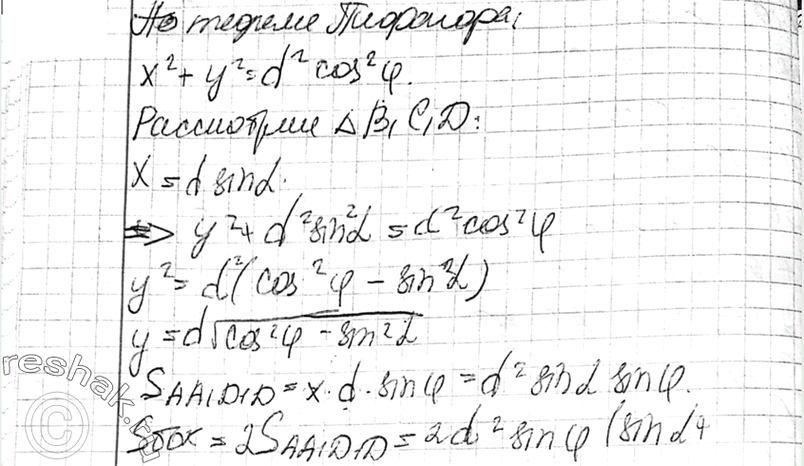 По теореме Пифагора:
x² + y² = d² cos² φ.
Рассмотрим Δ B₁C₁D:
x = d sin α.
=> y² + d² sin² α = d² cos² φ
y² = d² (cos² φ - sin² α)
y = d√(cos² φ - sin² α)
S AA₁D₁D = x · d · sin φ = d² sin α sin φ.
Sбок = 2S AA₁D₁D = 2d² sin φ (sin α +
reshak.ru
©